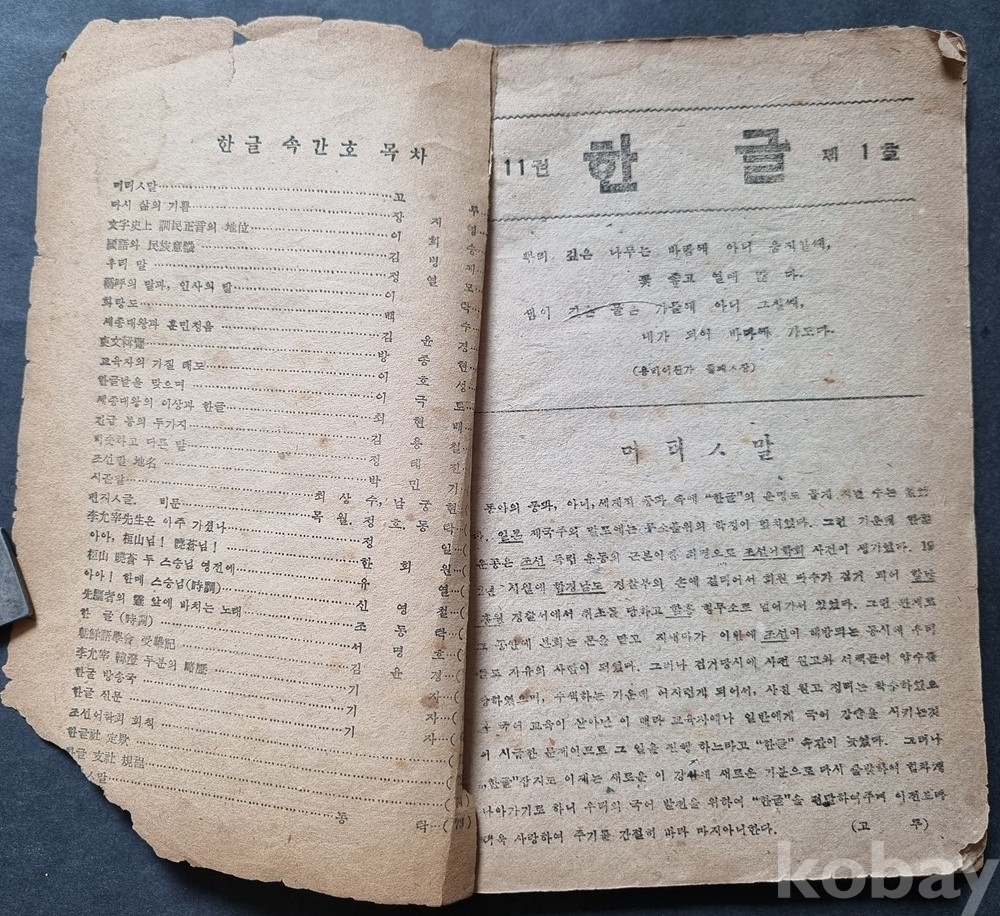 한글 속간호 목차
머리ㅅ말 고 루
다시 삶의 기쁨 장 지 영
文字史上 訓民正音의 地位 이 희 승
國語와 民族意識 김 병 제
우리 말 정 열 모
稱呼의 말과, 인사의 말 이 탁
화랑도 백 수
세종대왕과 훈민정음 김 윤 경
방 종 현
교육자의 가질 태도 이 호 성
한글날을 맞으며 이 극 로
세종대왕의 이상과 한글 최 현 배
긴급 동의 두가지 김 용
비슷하고 다른 말 정 태 진
조선말 地名 박 민 기
시골말 최 상 수, 남 궁 현
편지ㅅ글. 비문 목 월, 정 호 동 탁
李允宰先生은 아주 가셨나 정 일
아아, 桓山님! 曉蒼님! 한 회 원
桓山 曉蒼 두 스승님 영전에 유 열
아아! 한메 스승님(時調) 신 영 철
先驅者의 靈 앞에 바치는 노래 조 동 탁
한 글 (時調) 서 명 호
朝鮮語學會 受難記 김 윤 경
李允宰 韓澄 두분의 略歷 기 자
한글 방송국 기 자
한글 신문 기 자
조선어학회 회칙
한글社 定款
한글 支社 規程
ㅅ말 동 탁
11권 한 글 제 1 호
뿌리 깊은 나무는 바람에 아니 움직일쌔,
꽃 좋고 열매 많 다.
샘이 깊은 물은 가물에 아니 그칠쌔,
내가 되어 바다에 가도다.
(용비어천가 둘째ㅅ장)
머 리 ㅅ 말
동아의 풍파, 아니, 세계적 풍파 속에 "한글"의 운명도 곱게 지낼 수는 없었
다. 일본 제국주의 말로에는 꽃소들위의 학정이 혈치었다. 그런 가운데 한글
운동은 조선 독립 운동의 근본이란 죄명으로 조선어학회 사건이 생기었다. 19
년 시월에 함경남도 경찰부의 손에 걸리어서 회원 다수가 검거 되어 함남
홍원 경찰서에서 취조를 당하고 함흥 형무소로 넘어가서 있었다. 그런 관계로
그 동안에 본회는 문을 닫고 지내다가 이번에 조선이 해방되는 동시에 우리
들도 자유의 사람이 되었다. 그러나 검거당시에 사전 원고와 서책들이 압수를
당하였으며, 수색하는 가운데 어지럽게 되어서, 사전 원고 정리는 착수하였으
국어 교육이 살아난 이 때라 교육자에나 일반에게 국어 강습을 시키는것
이 시급한 문제이므로 그 일을 진행 하느라고 "한글" 속간이 늦었다. 그러나
"한글"잡지도 이제는 새로운 이 강산에 새로운 기분으로 다시 출발하여 힘차게
나아가기로 하니 우리의 국어 발전을 위하여 "한글"을 전달하여주며 이전보다
더욱 사랑하여 주기를 간절히 바라 마지아니한다. (고 루)
kobay